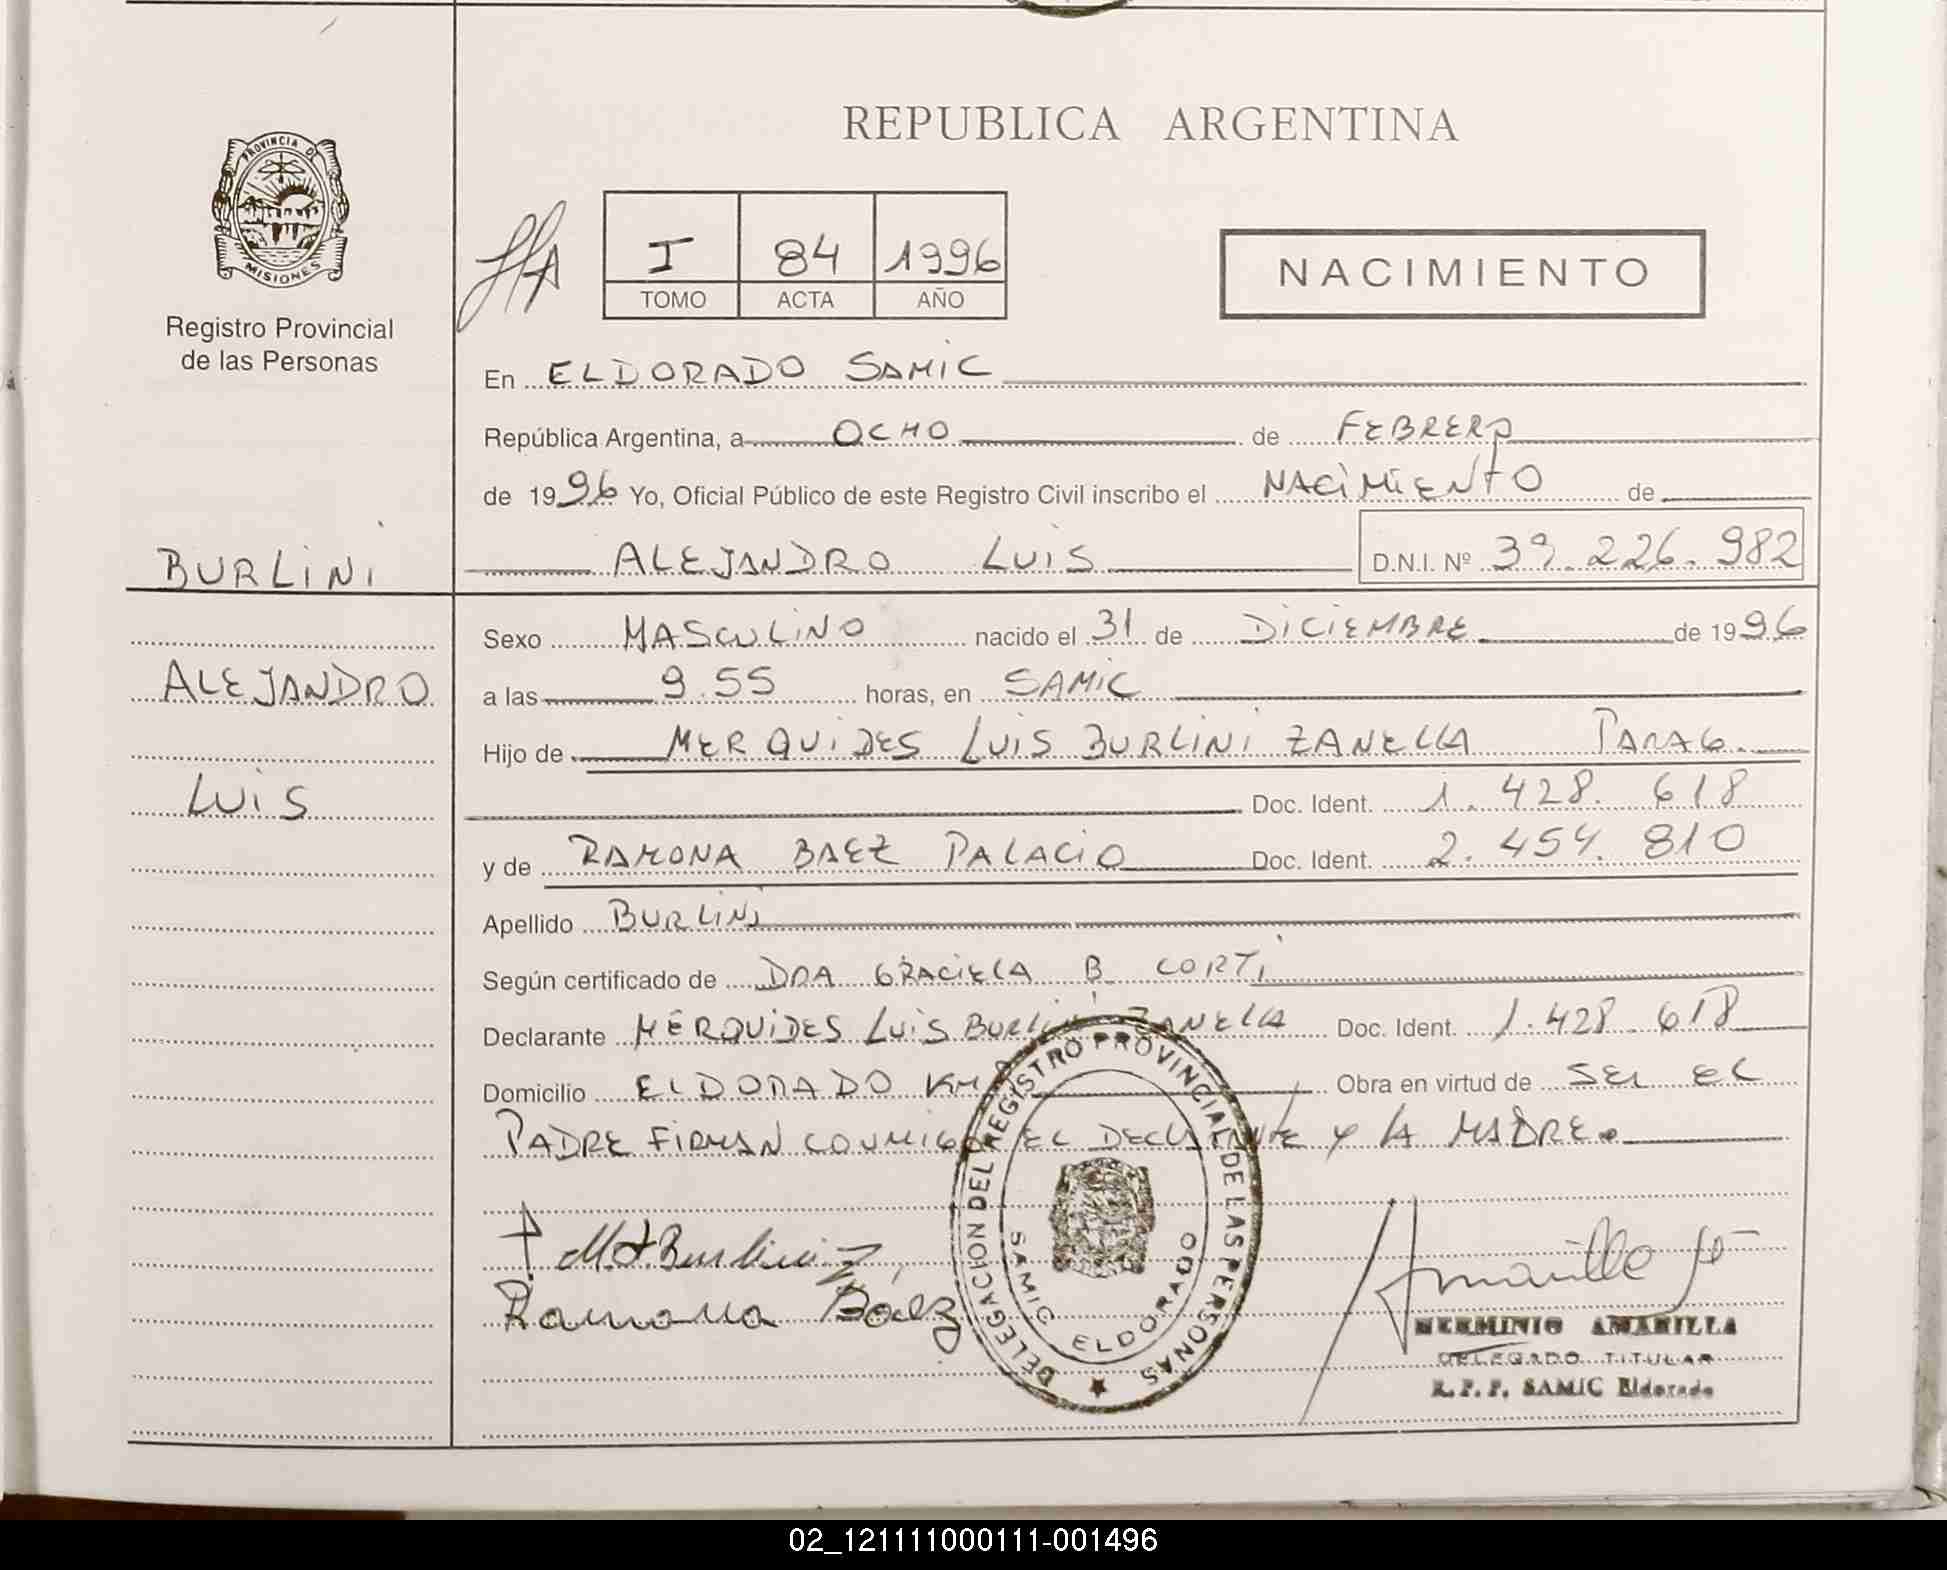 REPUBLICA ARGENTINA
PROVINCIA DE
MISIONES
Registro Provincial
de las Personas
I 84 1996
TOMO ACTA AÑO
NACIMIENTO
En ELDORADO SAMIC
República Argentina, a OCHO de FEBRERO
de 1996 Yo, Oficial Público de este Registro Civil inscribo el NACIMIENTO de
BURLINI
ALEJANDRO LUIS D.N.I. Nº 39.226.982
Sexo MASCULINO nacido el 31 de DICIEMBRE de 1996
ALEJANDRO
a las 9.55 horas, en SAMIC
Hijo de MERQUIDES LUIS BURLINI ZANELLA PARAG.
LUIS
Doc. Ident. 1.428.618
y de RAMONA BAEZ PALACIO Doc. Ident. 2.454.810
Apellido BURLINI
Según certificado de DRA GRACIELA B. CORTI
Declarante MERQUIDES LUIS BURLINI ZANELLA Doc. Ident. 1.428.618
Domicilio ELDORADO KM Obra en virtud de SER EL
PADRE FIRMAN CONMIGO EL DECLARANTE Y LA MADRE.
M.L.Burlini Z.
Ramona Báez
DELEGACION DEL REGISTRO PROVINCIAL DE LAS PERSONAS
SAMIC ELDORADO
HERMINIO AMARILLA
DELEGADO TITULAR
R.P.P. SAMIC Eldorado
02_121111000111-001496